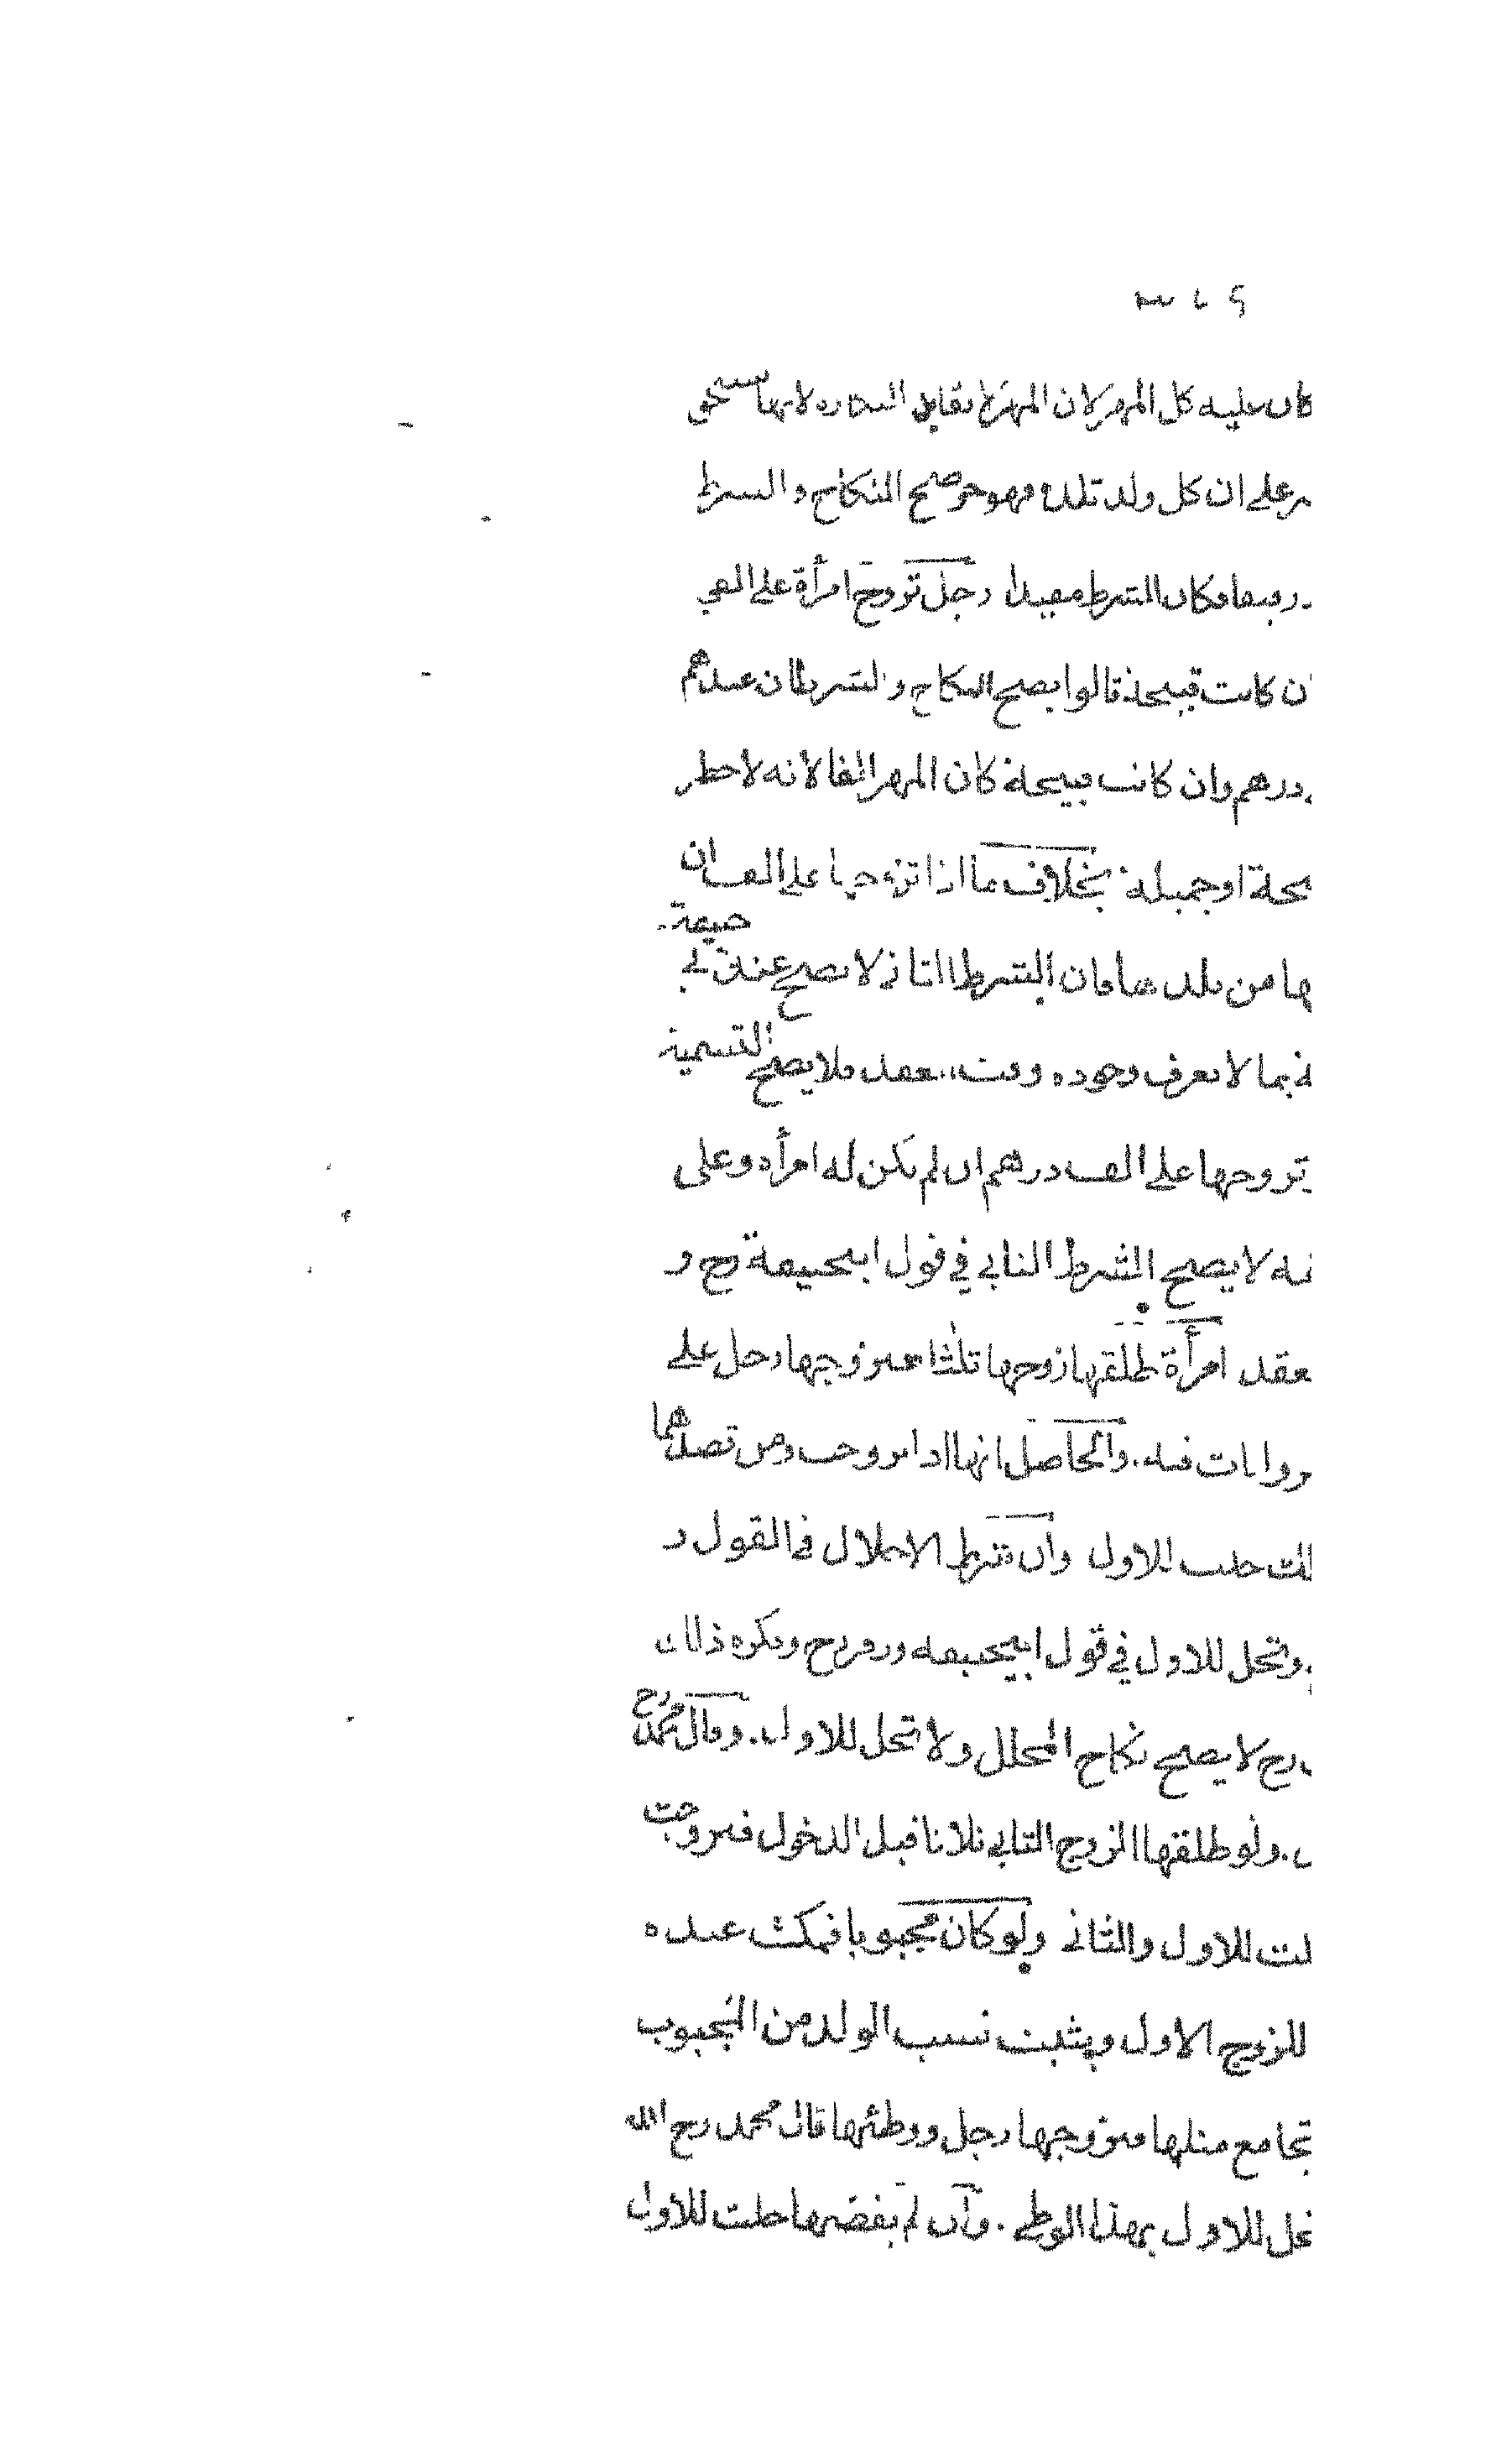 كان عليه كل المهر لان المهر لا يقابل البكاره لانها تستحق
على ان كل ولد تلده فهو حر صح النكاح والشرط
وكان الشرط مفيدا رجل تزوج امرأة على الفي
ان كانت قبيحة قالوا يصح النكاح والشرطان عندهم
درهم وان كانت قبيحة كان المهر الفا لانه لا خطر
او جميلة بخلاف ما اذا تزوجها على الف ان
من بلدها فان الشرط الثاني لا يصح عند ابي حنيفة
بما لا يعرف وجوده وقت العقد فلا يصح التسمية
تزوجها على الف درهم ان لم يكن له امرأه وعلى
لا يصح الشرط الثاني في قول ابيحنيفة رح و
عقد امرأة طلقها زوجها ثلثا فتزوجها رجل على
روايات فيه. والحاصل انها اذا تزوجت ومن قصدهما
حلت للاول وان شرط الاحلال في القول و
وتحل للاول في قول ابيحنيفه وزفر رح ويكره ذلك
رح لا يصح نكاح المحلل ولا تحل للاول. وقال محمد رح
. ولو طلقها الزوج الثاني ثلاثا قبل الدخول فتزوجت
لت للاول والثاني ولو كان مجبوبا فمكث عنده
للزوج الاول ويثبت نسب الولد من المجبوب
تجامع مثلها فتزوجها رجل ووطئها قال محمد رح الله
تحل للاول بهذا الوطى. وان لم يفضها حلت للاول